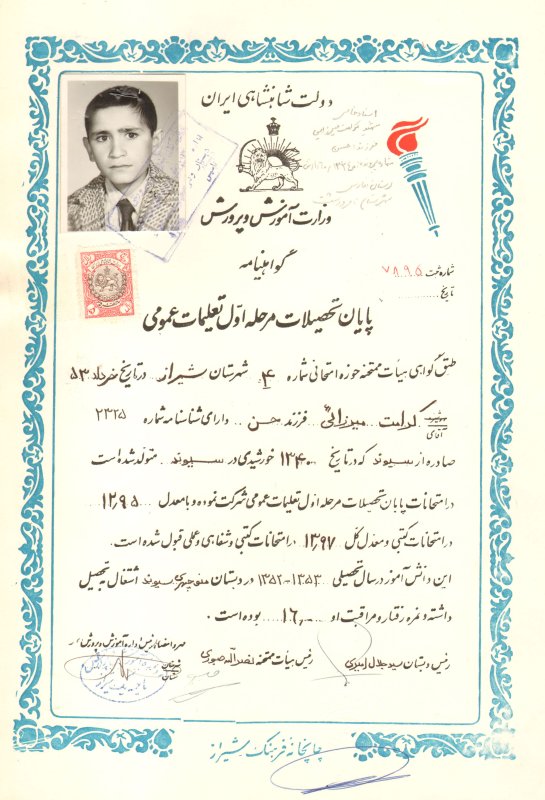 دولت شاهنشاهی ایران
وزارت آموزش و پرورش
گواهینامه
شماره ثبت ۷۸۹۵
تاریخ
پایان تحصیلات مرحله اول تعلیمات عمومی
طبق گواهی هیأت ممتحنه حوزه امتحانی شماره ۴ شهرستان شیراز در تاریخ خرداد ۵۳
دوشیزه
آقای کرامت میرزائی فرزند حسن دارای شناسنامه شماره ۲۳۲۵
صادره از سیوند که در تاریخ ۱۳۴۰ خورشیدی در سیوند متولد شده است
در امتحانات پایان تحصیلات مرحله اول تعلیمات عمومی شرکت نموده و با معدل ۱۲٫۹۵
در امتحانات کتبی و معدل کل ۱۳٫۹۷ در امتحانات کتبی و شفاهی و عملی قبول شده است.
این دانش آموز در سال تحصیلی ۱۳۵۳-۱۳۵۲ در دبستان منوچهری سیوند اشتغال به تحصیل
داشته و نمره رفتار و مراقبت او ۱۶٫۰۰ بوده است.
رئیس دبستان سید جلال رئیس هیأت ممتحنه نصراله صبوری مهر و امضاء رئیس اداره آموزش و پرورش
شهرستان
چاپخانه فرهنگ شیراز